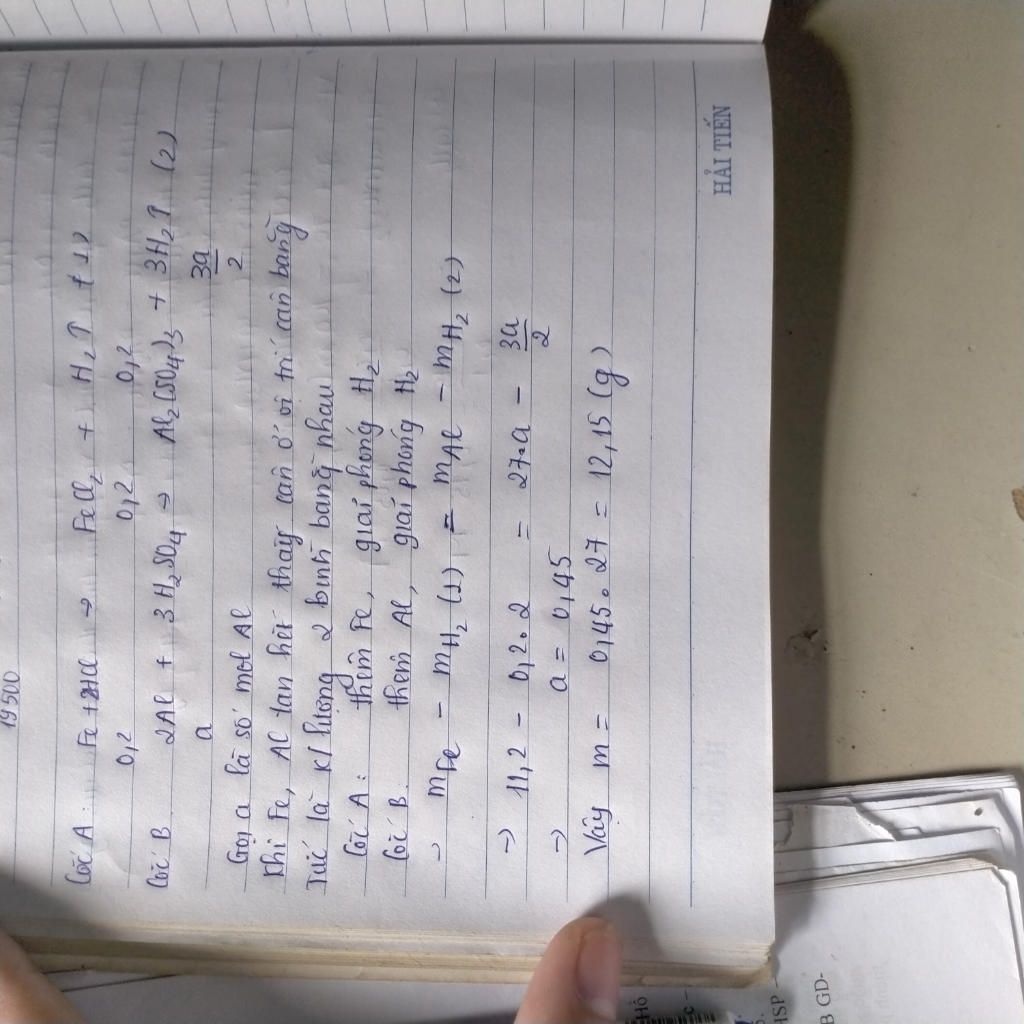 19500
Cốc A: Fe + 2HCl → FeCl₂ + H₂↑ (1)
0,2 0,2 0,2
Cốc B. 2Al + 3H₂SO₄ → Al₂(SO₄)₃ + 3H₂↑ (2)
a 3a/2
Gọi a là số mol Al
Khi Fe, Al tan hết thấy cân ở vị trí cân bằng
Tức là k/lượng 2 bình bằng nhau
Cốc A: thêm Fe, giải phóng H₂
Cốc B. thêm Al, giải phóng H₂
→ mFe - mH₂(1) = mAl - mH₂(2)
→ 11,2 - 0,2.2 = 27.a - 3a/2
→ a = 0,45
Vậy m = 0,45.27 = 12,15 (g)
HẢI TIẾN
Hồ
HSP -
B GD-